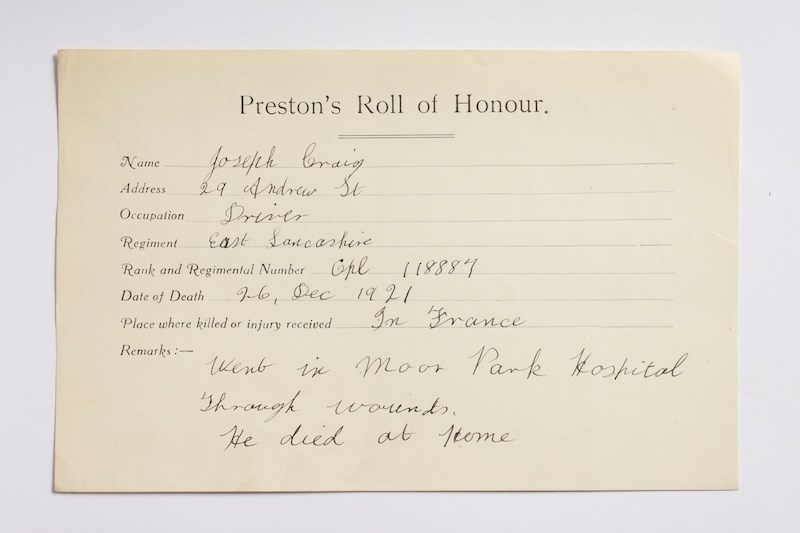 Preston's Roll of Honour.
Name Joseph Craig
Address 29 Andrew St
Occupation Driver
Regiment East Lancashire
Rank and Regimental Number Cpl 118887
Date of Death 26, Dec 1921
Place where killed or injury received In France
Remarks :—
Went in Moor Park Hospital
Through wounds.
He died at Home